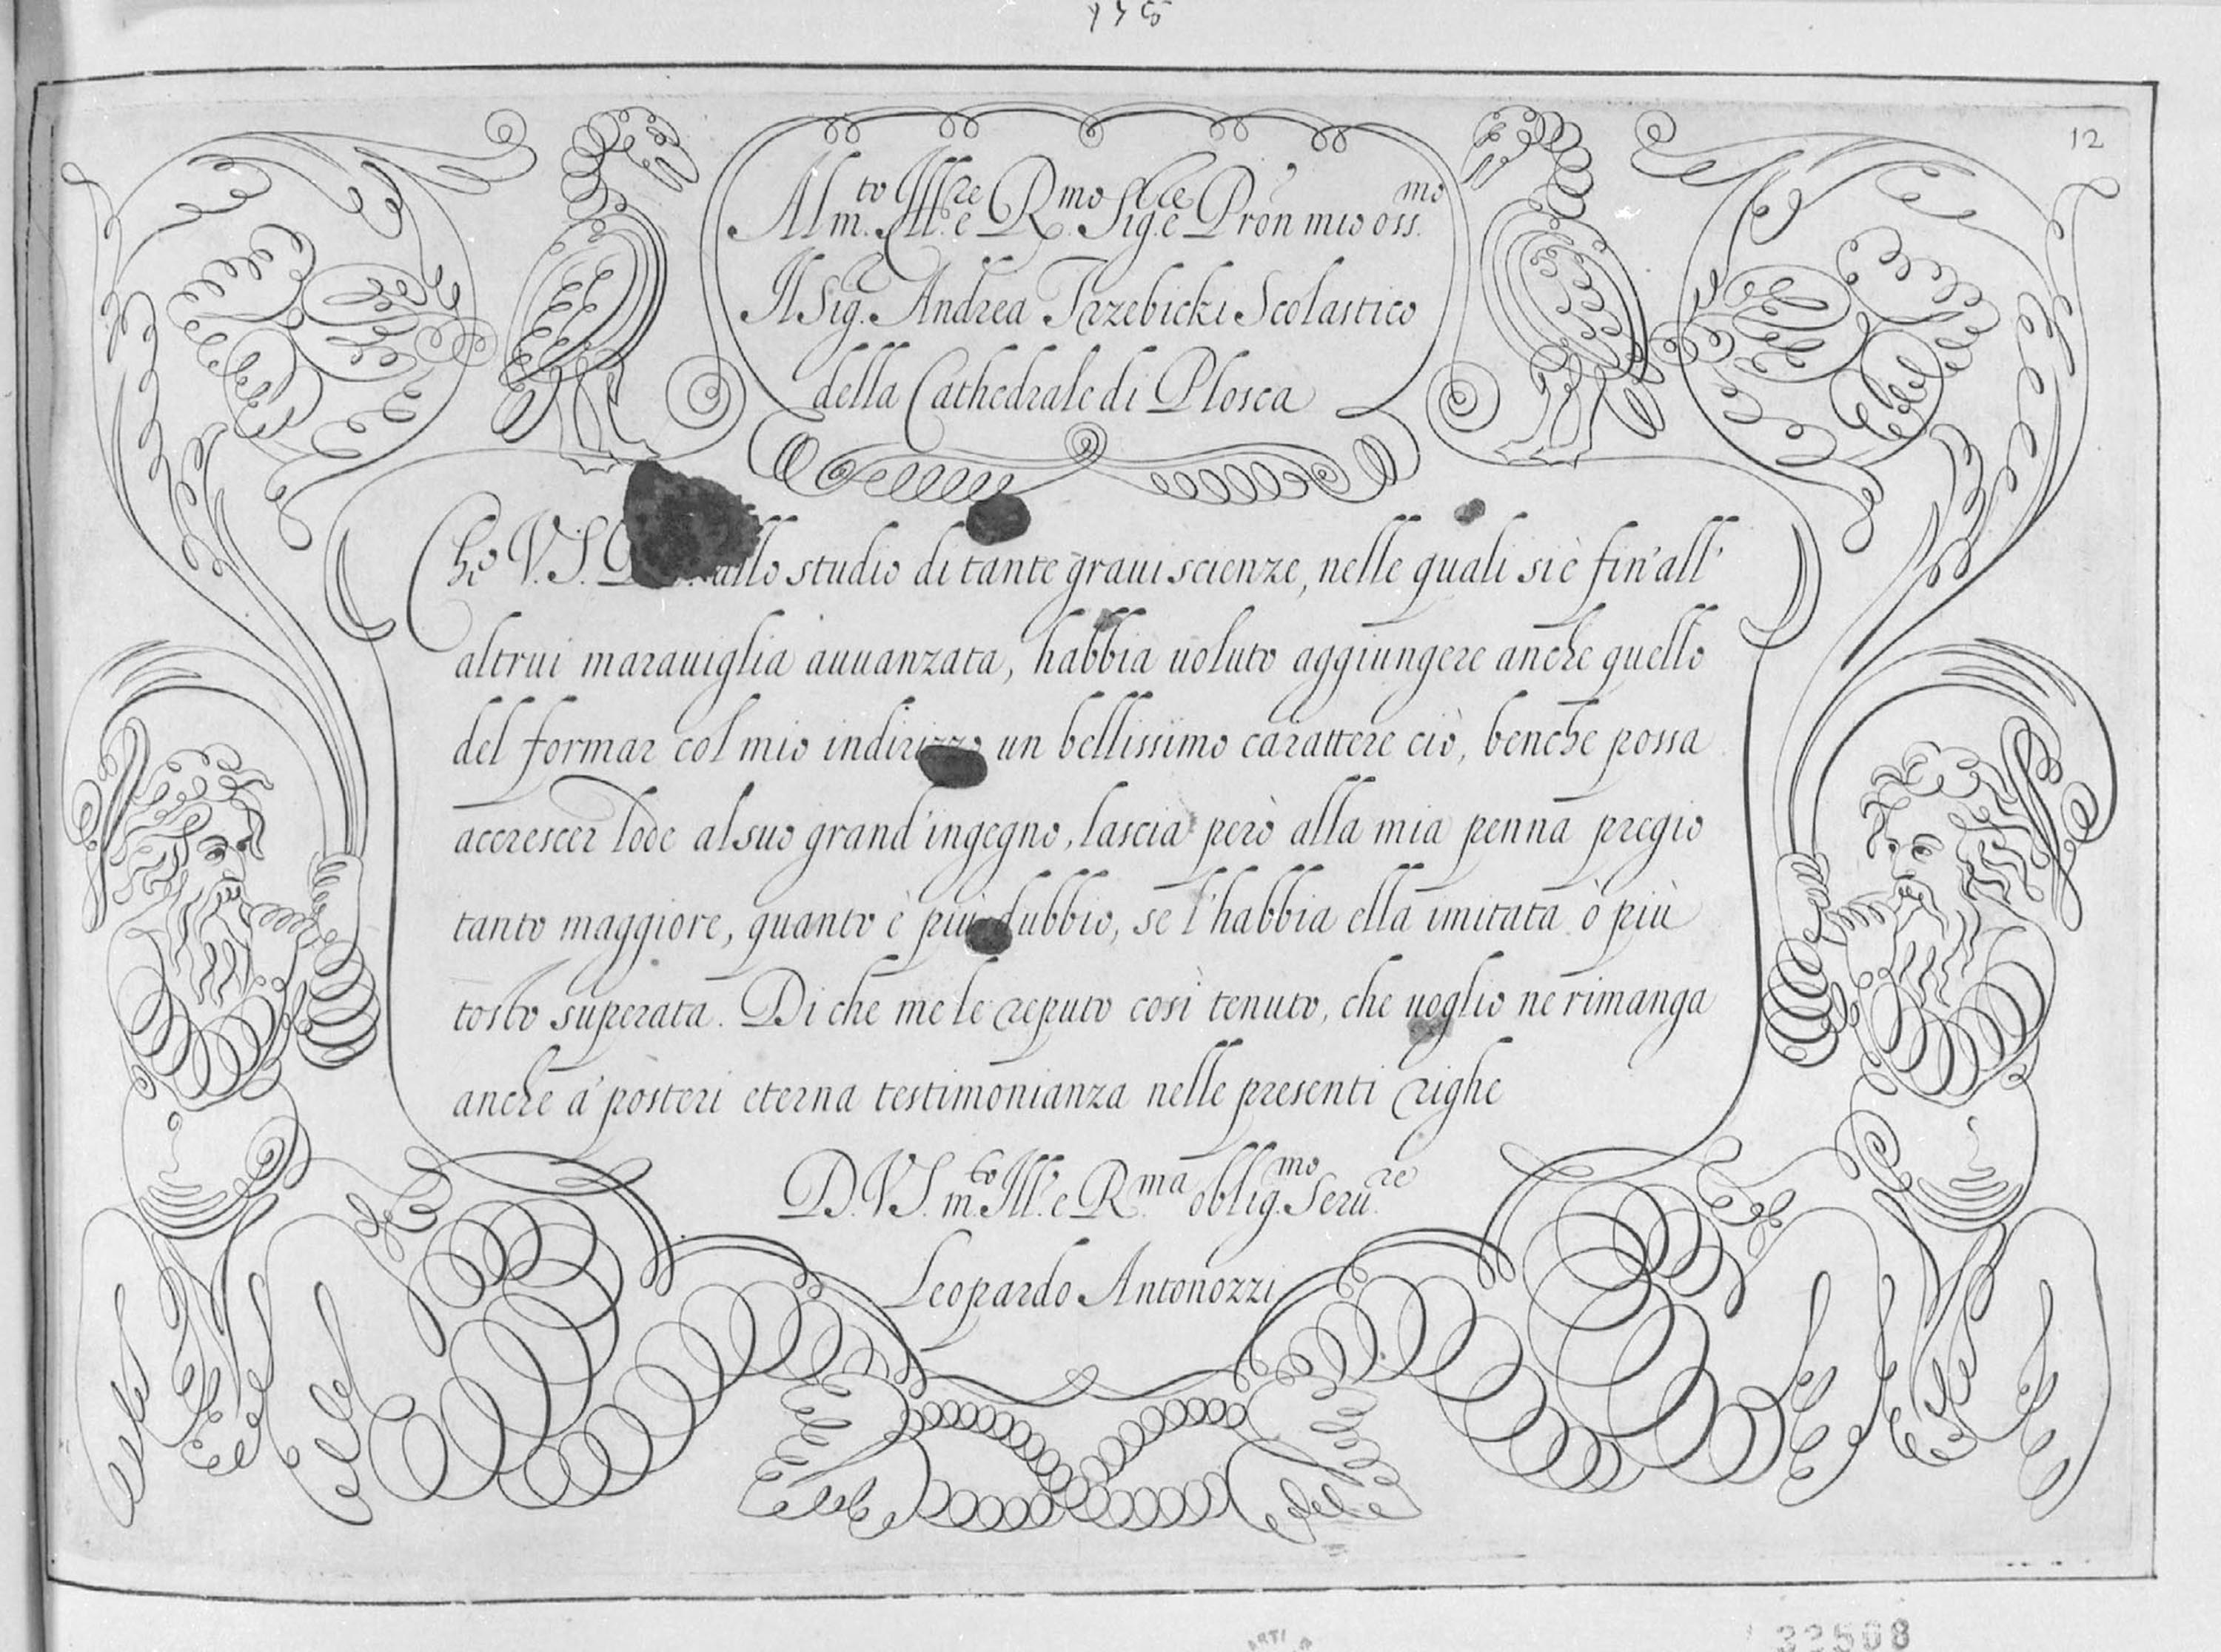 12
Al m.to Ill.re e R.mo Sig.re e Pron mio oss.mo
Il Sig.r Andrea Trzebicki Scolastico
della Cathedrale di Plosca
Che V.S. allo studio di tante graui scienze, nelle quali si è fin'all'
altrui marauiglia auuanzata, habbia uoluto aggiungere anche quello
del formar col mio indirizzo un bellissimo carattere ciò, benche possa
accrescer lode al suo grand'ingegno, lascia però alla mia penna pregio
tanto maggiore, quanto è più dubbio, se l'habbia ella imitata ò più
tosto superata. Di che me le reputo così tenuto, che uoglio ne rimanga
anche a' posteri eterna testimonianza nelle presenti righe
D.V.S. m.to Ill.re e R.ma oblig.mo Seru.re
Leopardo Antonozzi
22508